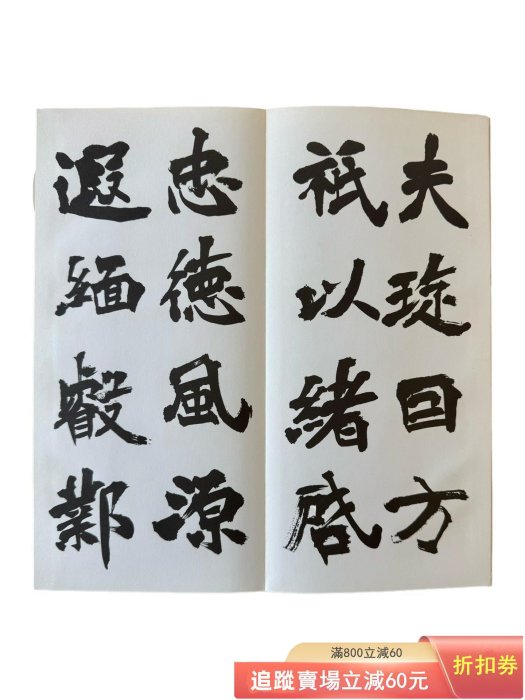 夫琁回方
祇以緒啓
忠德風源
遐緬叡鄴
滿800立減60
追蹤賣場立減60元
折扣券